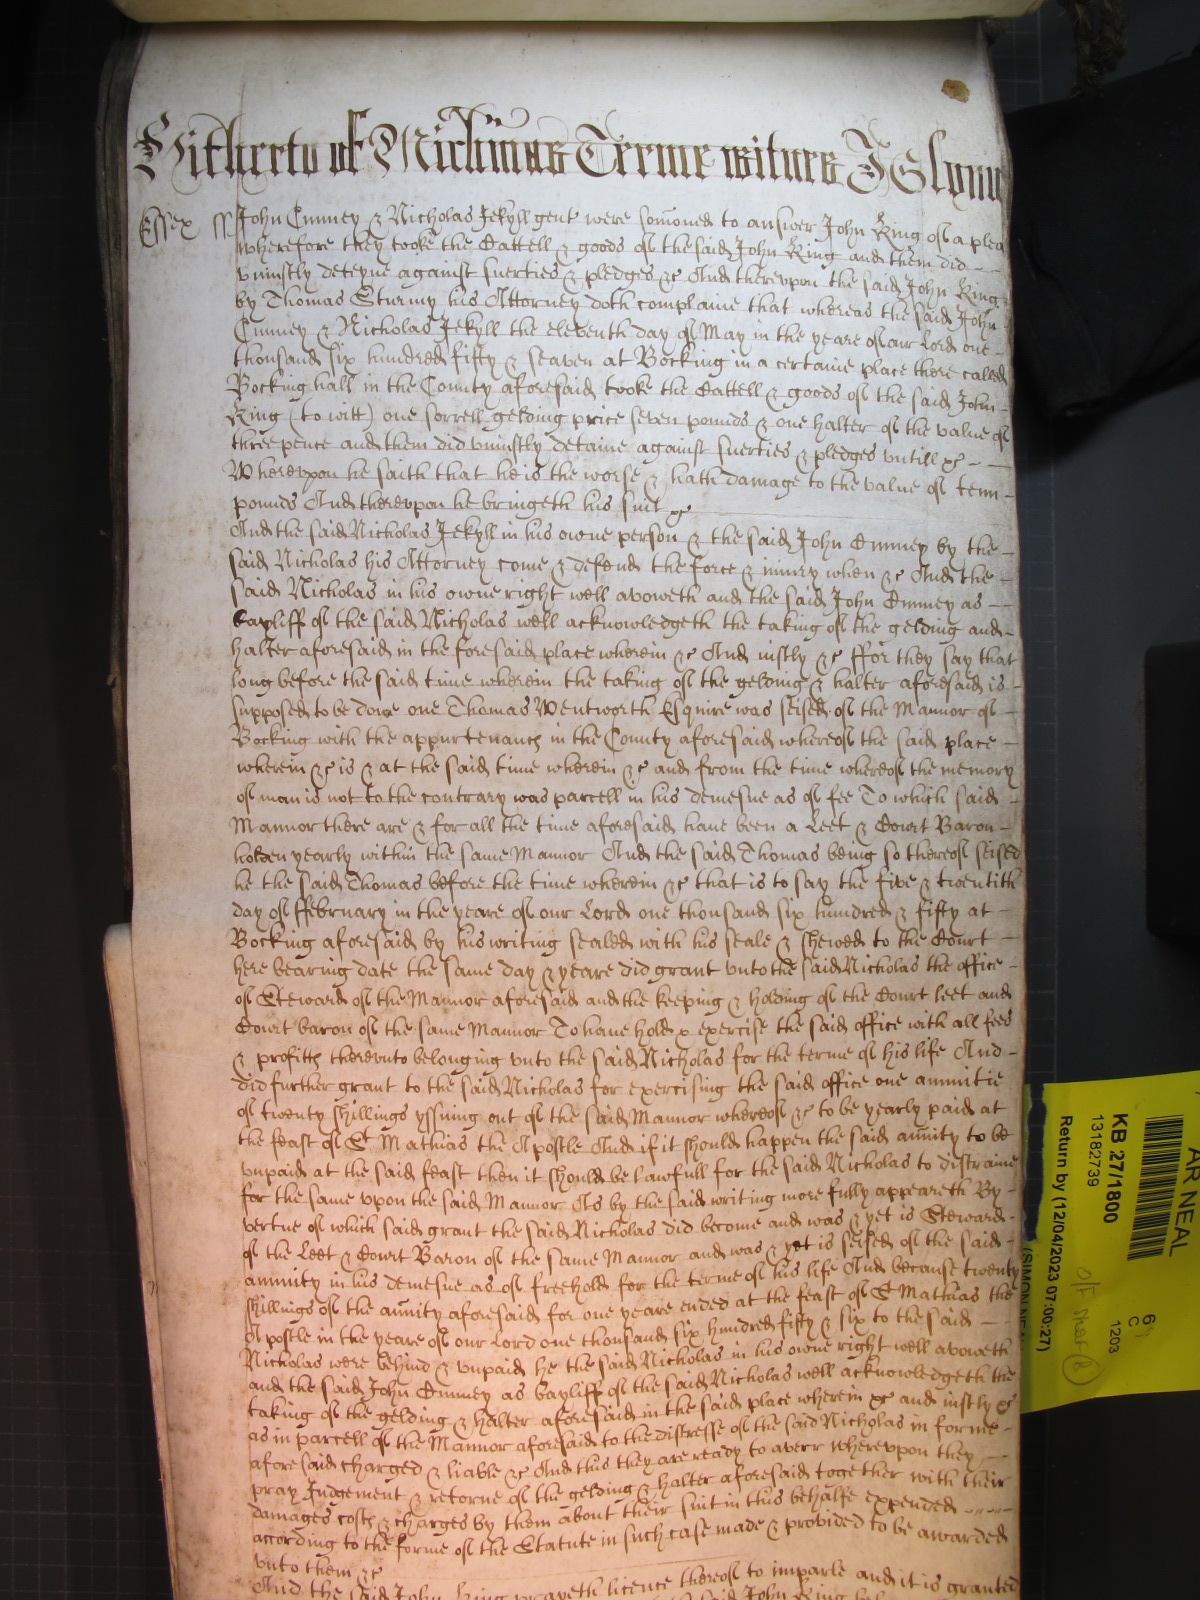 Hitherto of Michmas Terme witnes J Glynn
Essex ss John Emmey & Nicholas Jekyll gent were somoned to answer John King of a plea
wherefore they tooke the Cattell & goods of the said John King and them did
uniustly deteyne against suerties & pledges &c And therevpon the said John King
by Thomas Sturmy his Attorney doth complaine that whereas the said John
Emmey & Nicholas Jekyll the eleventh day of May in the yeare of our Lord one
thousand six hundred fifty & seaven at Bocking in a certaine place there called
Bocking hall in the County aforesaid tooke the Cattell & goods of the said John
King (to witt) one sorrell gelding price seven pounds & one halter of the value of
three pence and them did vniustly detaine against suerties & pledges vntill &c
Wherevpon he saith that he is the worse & hath damage to the value of tenn
pounds And therevpon he bringeth his suit &c
And the said Nicholas Jekyll in his owne person & the said John Emmey by the
said Nicholas his Attorney come & defend the force & iniury when &c And the
said Nicholas in his owne right well avoweth and the said John Emmey as
bayliff of the said Nicholas well acknowledgeth the taking of the gelding and
halter aforesaid in the foresaid place wherein &c And iustly &c ffor they say that
long before the said time wherein the taking of the gelding & halter aforesaid is
supposed to be done one Thomas Wentworth Esquire was seised of the Mannor of
Bocking with the appurtenancs in the County aforesaid whereof the said place
wherein &c is & at the said time wherein &c and from the time whereof the memory
of man is not to the contrary was parcell in his demesne as of fee To which said
Mannor there are & for all the time aforesaid have been a Leet & Court Baron
holden yearly within the same Mannor And the said Thomas being so thereof seised
he the said Thomas before the time wherein &c that is to say the five & twentith
day of ffebruary in the yeare of our Lord one thousand six hundred & fifty at
Bocking aforesaid by his writing sealed with his seale & shewed to the Court
here bearing date the same day & yeare did grant vnto the said Nicholas the office
of Steward of the Mannor aforesaid and the keeping & holding of the Court leet and
Court baron of the same Mannor To have hold & exercise the said office with all fees
& profitts therevnto belonging vnto the said Nicholas for the terme of his life And
did further grant to the said Nicholas for exercising the said office one annuitie
of twenty shillings yssuing out of the said Mannor whereof &c to be yearly paid at
the feast of St Mathias the Apostle And if it should happen the said anuity to be
vnpaid at the said feast then it should be lawfull for the said Nicholas to distraine
for the same vpon the said Mannor As by the said writing more fully appeareth By
vertue of which said grant the said Nicholas did become and was & yet is Steward
of the Leet & Court Baron of the same Mannor and was & yet is seised of the said
annuity in his demesne as of freehold for the terme of his life And because twenty
shillings of the anuity aforesaid for one yeare ended at the feast of St Mathias the
Apostle in the yeare of our Lord one thousand six hundred fifty & six to the said
Nicholas were behind & vnpaid he the said Nicholas in his owne right well avoweth
and the said John Emmey as bayliff of the said Nicholas well acknowledgeth the
taking of the gelding & halter aforesaid in the said place wherein &c and iustly &c
as in parcell of the Mannor aforesaid to the distresse of the said Nicholas in forme
aforesaid charged & liable &c And this they are ready to averr wherevpon they
pray Judgement & retorne of the gelding & halter aforesaid together with their
damages costs & charges by them about their suit in this behalfe expended
according to the forme of the Statute in such case made & provided to be awarded
vnto them &c
And the said John King prayeth licence thereof to imparle and it is granted
said John King
AR NEAL
KB 27/1800
13182739
Return by (12/04/2023 07:00:27)
C
1203